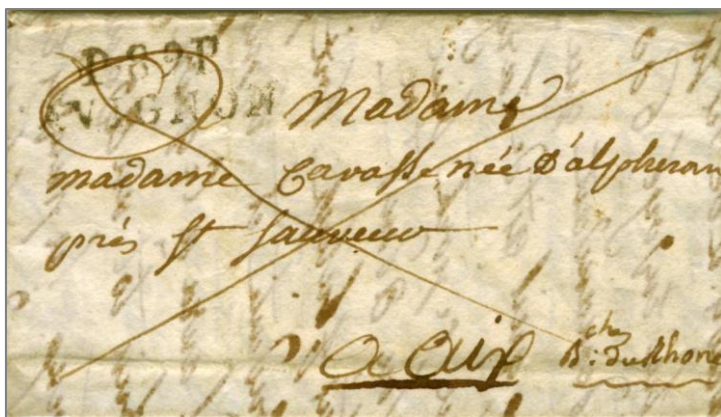 P.89.P
AVIGNON
Madame
madame Cavasse née d'alpheran
près st sauveur
a aix
B.ches du Rhone